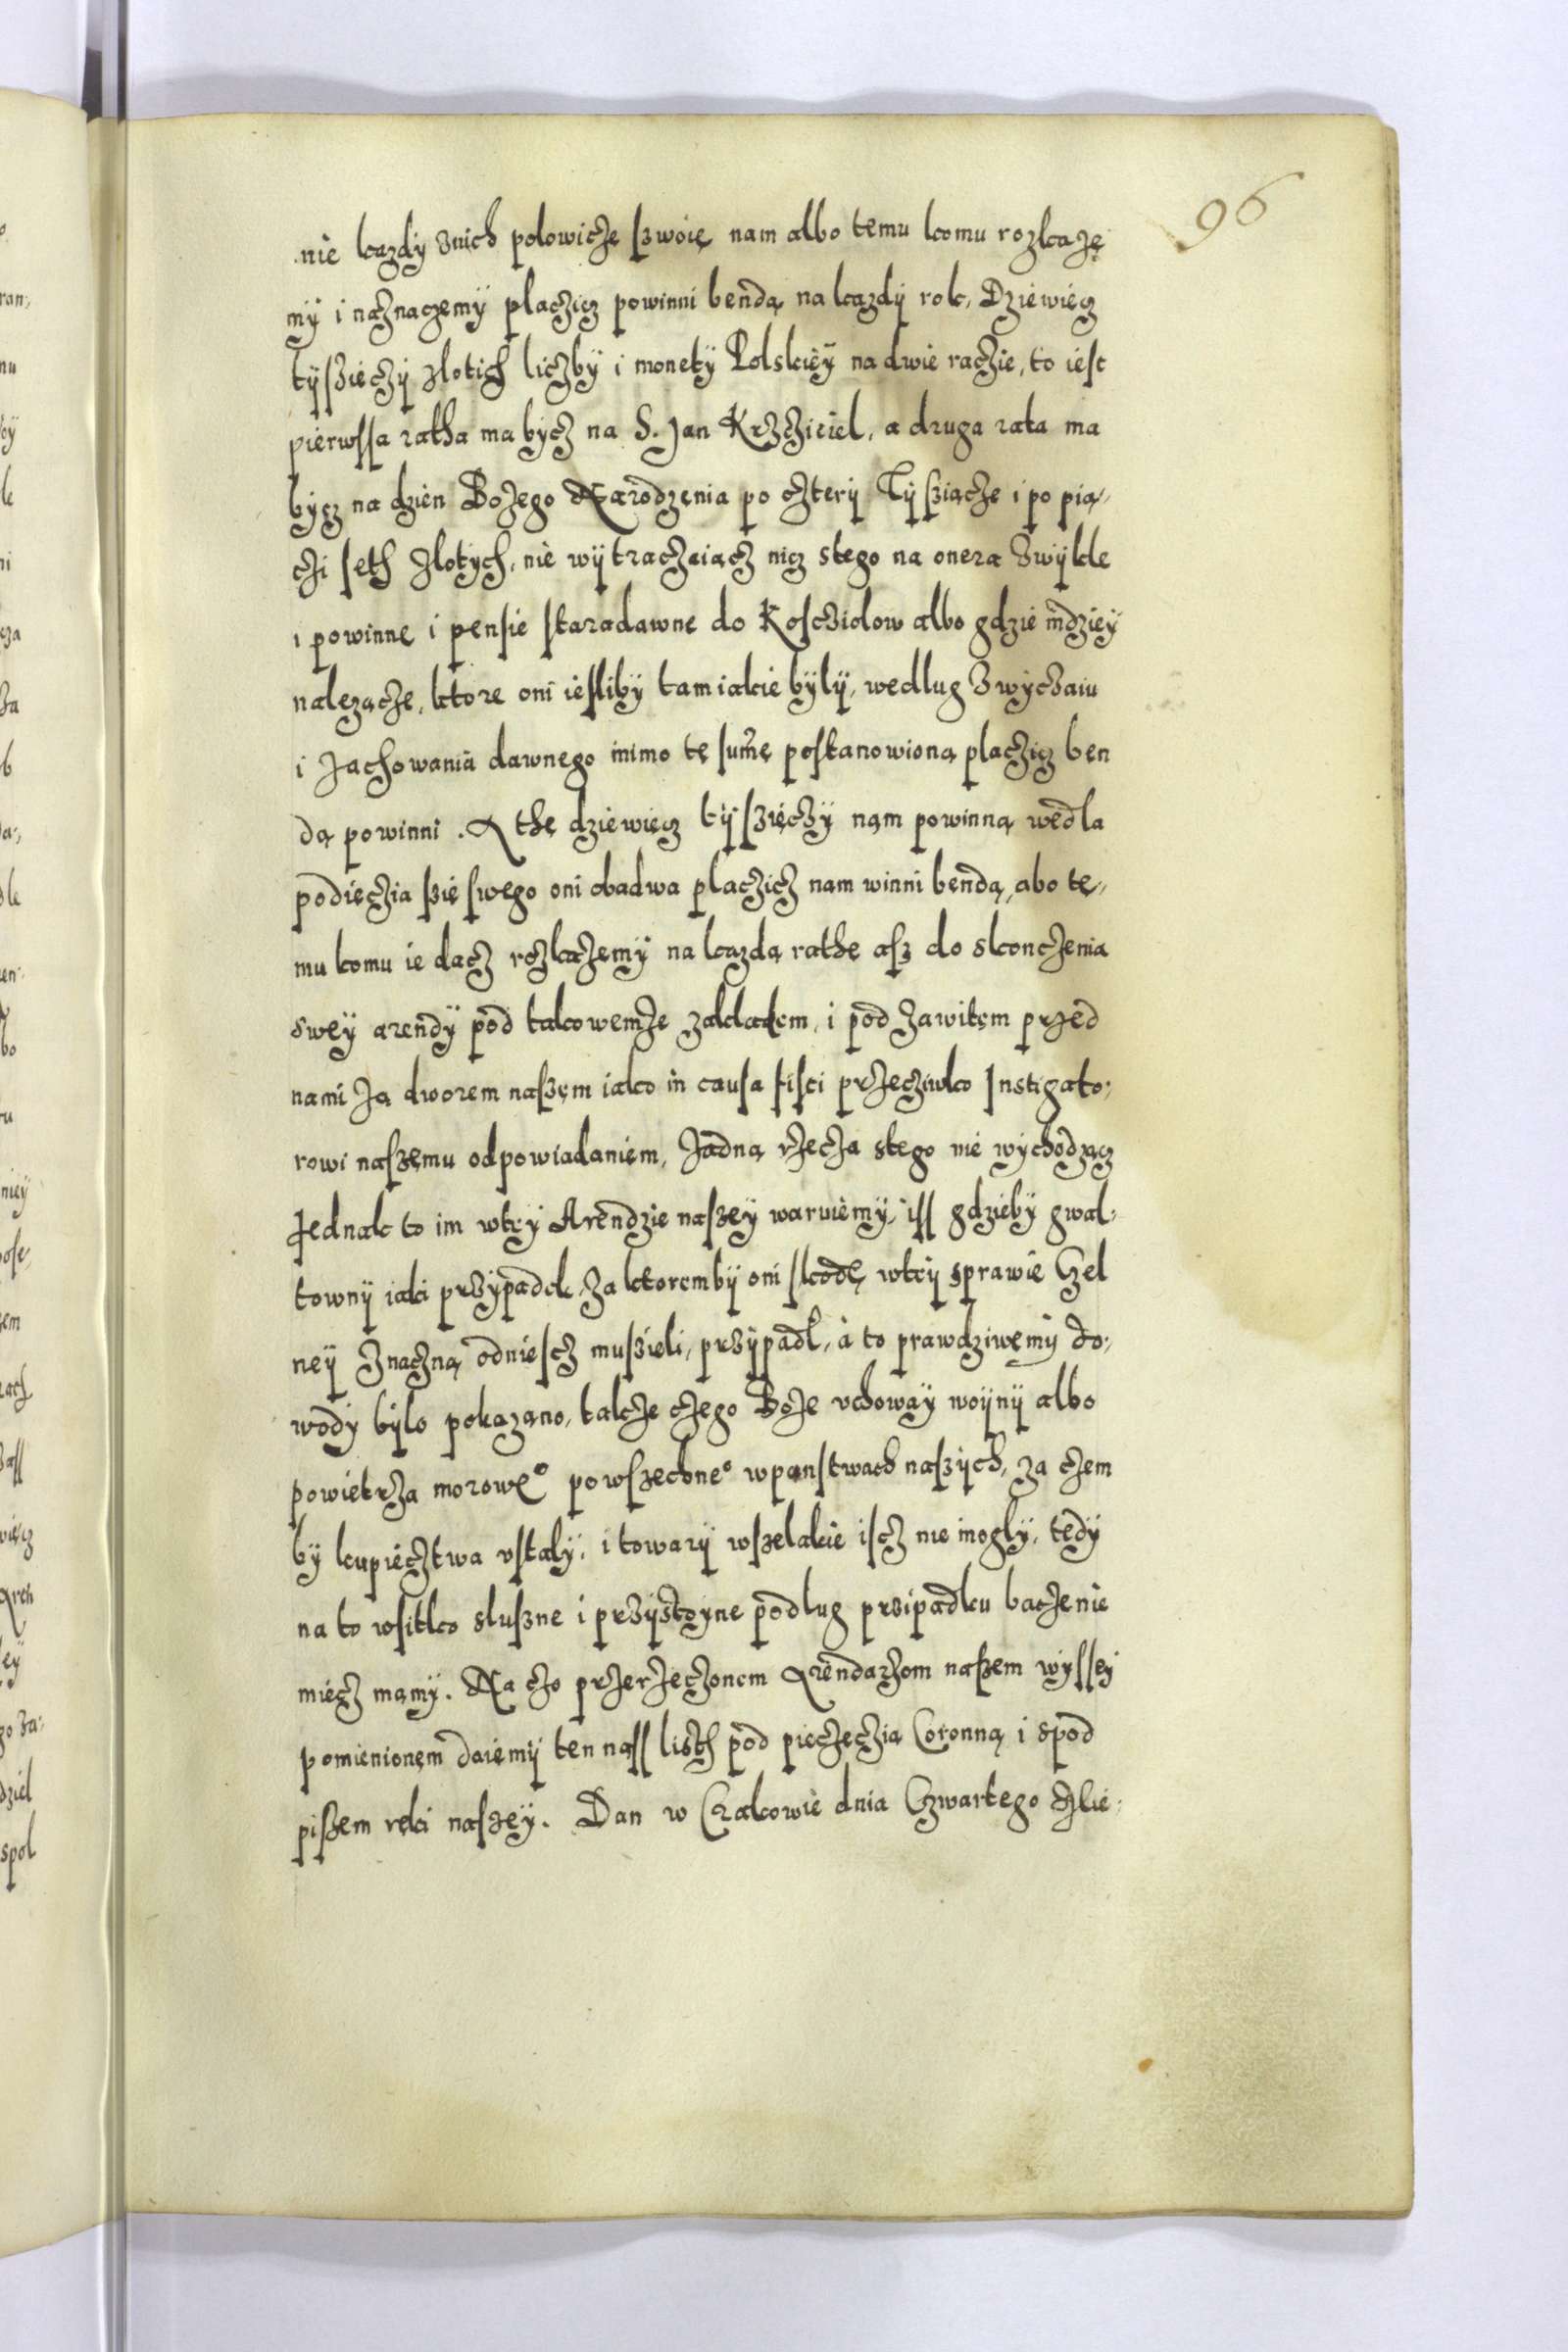 96
nie kazdy znich polowicze szwoię nam albo temu komu rozkażę
my i náznaczemy placzicz powinni bendą na kazdy rok, Dziewiecz
tyszięczy zlotich liczby i monety Polskiey na dwie raczie, to iest
pierwssa ratha ma bycz na S. Jan Krzcziciel, a druga rata ma
bycz na dzien Bożego Narodzenia po cztery Tysziącze i po pią-
czi seth złotych, nie wytraczaiącz nicz stego na onera zwykle
i powinne i pensie staradawne do Koscziolow albo gdzie indziey
nalezącze, ktore oni iesliby tam iakie byly, wedlug zwyczaiu
i zachowania dawnego mimo tę sumę postanowioną placzicz ben
dą powinni. A thę dziewięcz tyszięczy nąm powinną wedla
podięczia szie swego oni obadwa placzicz nam winni bendą, abo te-
mu komu ie dacz rozkażemy na kazdą rathę asz do skonczenia
swey arendy pod takowemże zakladem, i pod zawitem przed
nami zą dworem naszem iako in causa fisci przecziwko Instigato-
rowi naszemu odpowiadaniem, żadną rzecżą stego nie wychodzącz
Jednak to im wtey Arendzie naszey waruiemy, iss gdzieby gwal-
towny iaki przypadek, za ktorembÿ oni skodę wtey sprawie Czel
neÿ znaczną odniescz musieli, przypadl, a to prawdziwemy do-
wody bylo pokazano, także czego Boże vchoway woyny albo
powietrza moroweº powszechneº wpanstwach naszych, za czem
by kupiecztwa vstaly, i towary wszelakie iscz nie mogly, tedy
na to wsitko sluszne i przystoyne podlug przipadku baczenie
miecz mąmy. Na czo przerzeczonem Arendarzom naszem wyssey
pomienionem daiemy ten nass listh pod pieczęczia Coronną i spod
piszem ręki naszey. Dan w Crakowie dnia Czwartego Xżie-